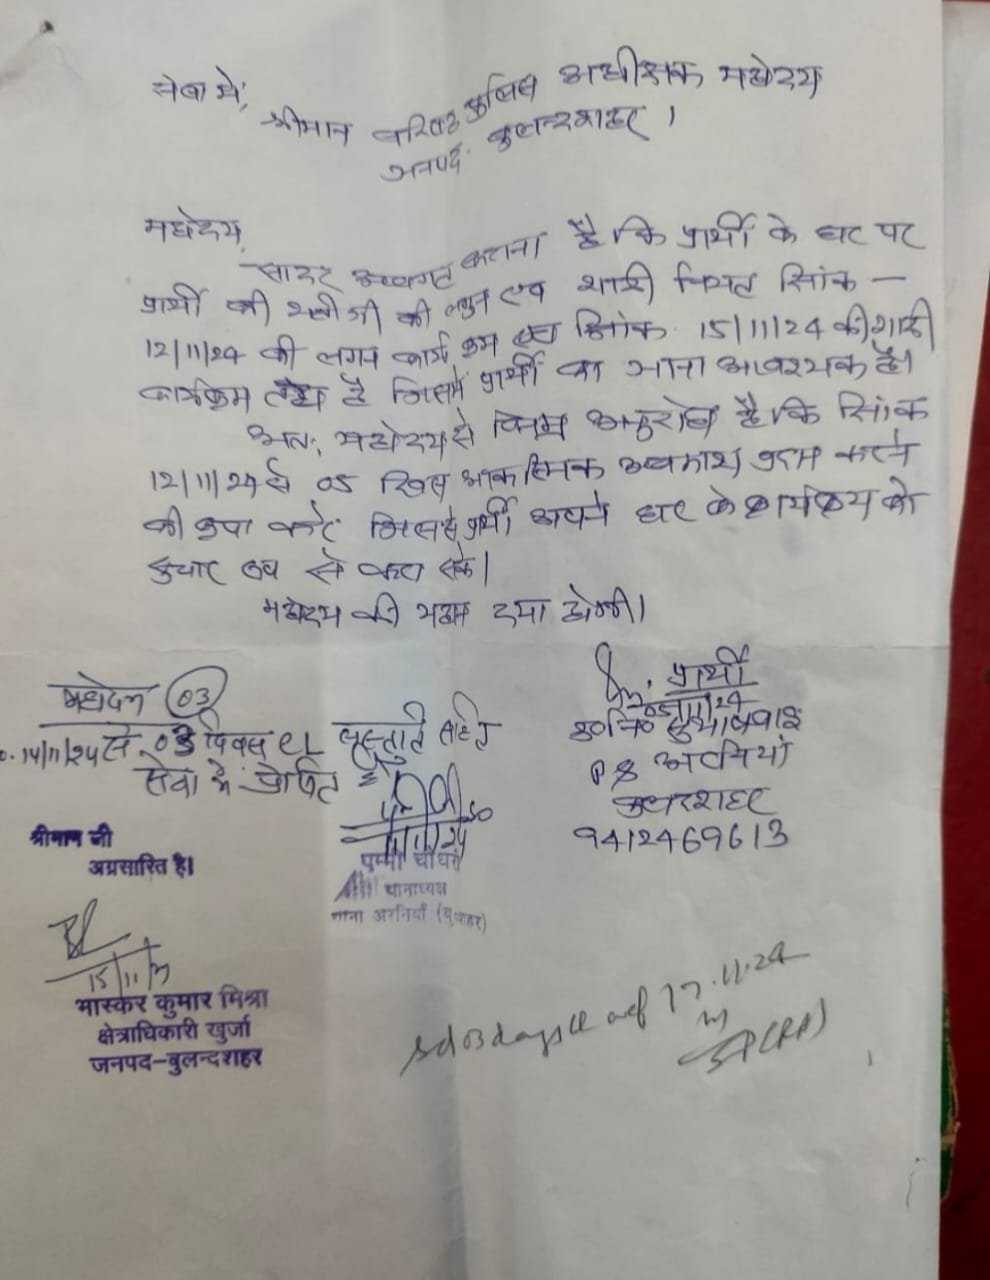 सेवा में,
श्रीमान वरिष्ठ पुलिस अधीक्षक महोदय
जनपद बुलन्दशहर ।
महोदय,
सादर अवगत कराना है कि प्रार्थी के घर पर
प्रार्थी की भतीजी की लगुन एव शादी नियत दिनांक -
12/11/24 की लगन कार्यक्रम एव दिनांक 15/11/24 की शादी
कार्यक्रम है जिसमे प्रार्थी का जाना आवश्यक है।
अतः महोदय से विनम्र अनुरोध है कि दिनांक
12/11/24 से 05 दिवस आकस्मिक अवकाश प्रदान करने
की कृपा करें जिससे प्रार्थी अपने घर के कार्यक्रम को
सुचार रूप से करा सके।
महोदय की महान दया होगी।
महोदय 03
14/11/24 से 03 दिवस CL संस्तुति सहित
सेवा में प्रेषित है
11/11/24
प्रार्थी
05/11/24
उ0नि0
PS अरनियां
बुलन्दशहर
9412469613
श्रीमान जी
अग्रसारित है।
15/11/24
भास्कर कुमार मिश्रा
क्षेत्राधिकारी खुर्जा
जनपद-बुलन्दशहर
चौधरी
थानाध्यक्ष
थाना अरनियाँ (बु0शहर)
03 days CL wef 17.11.24